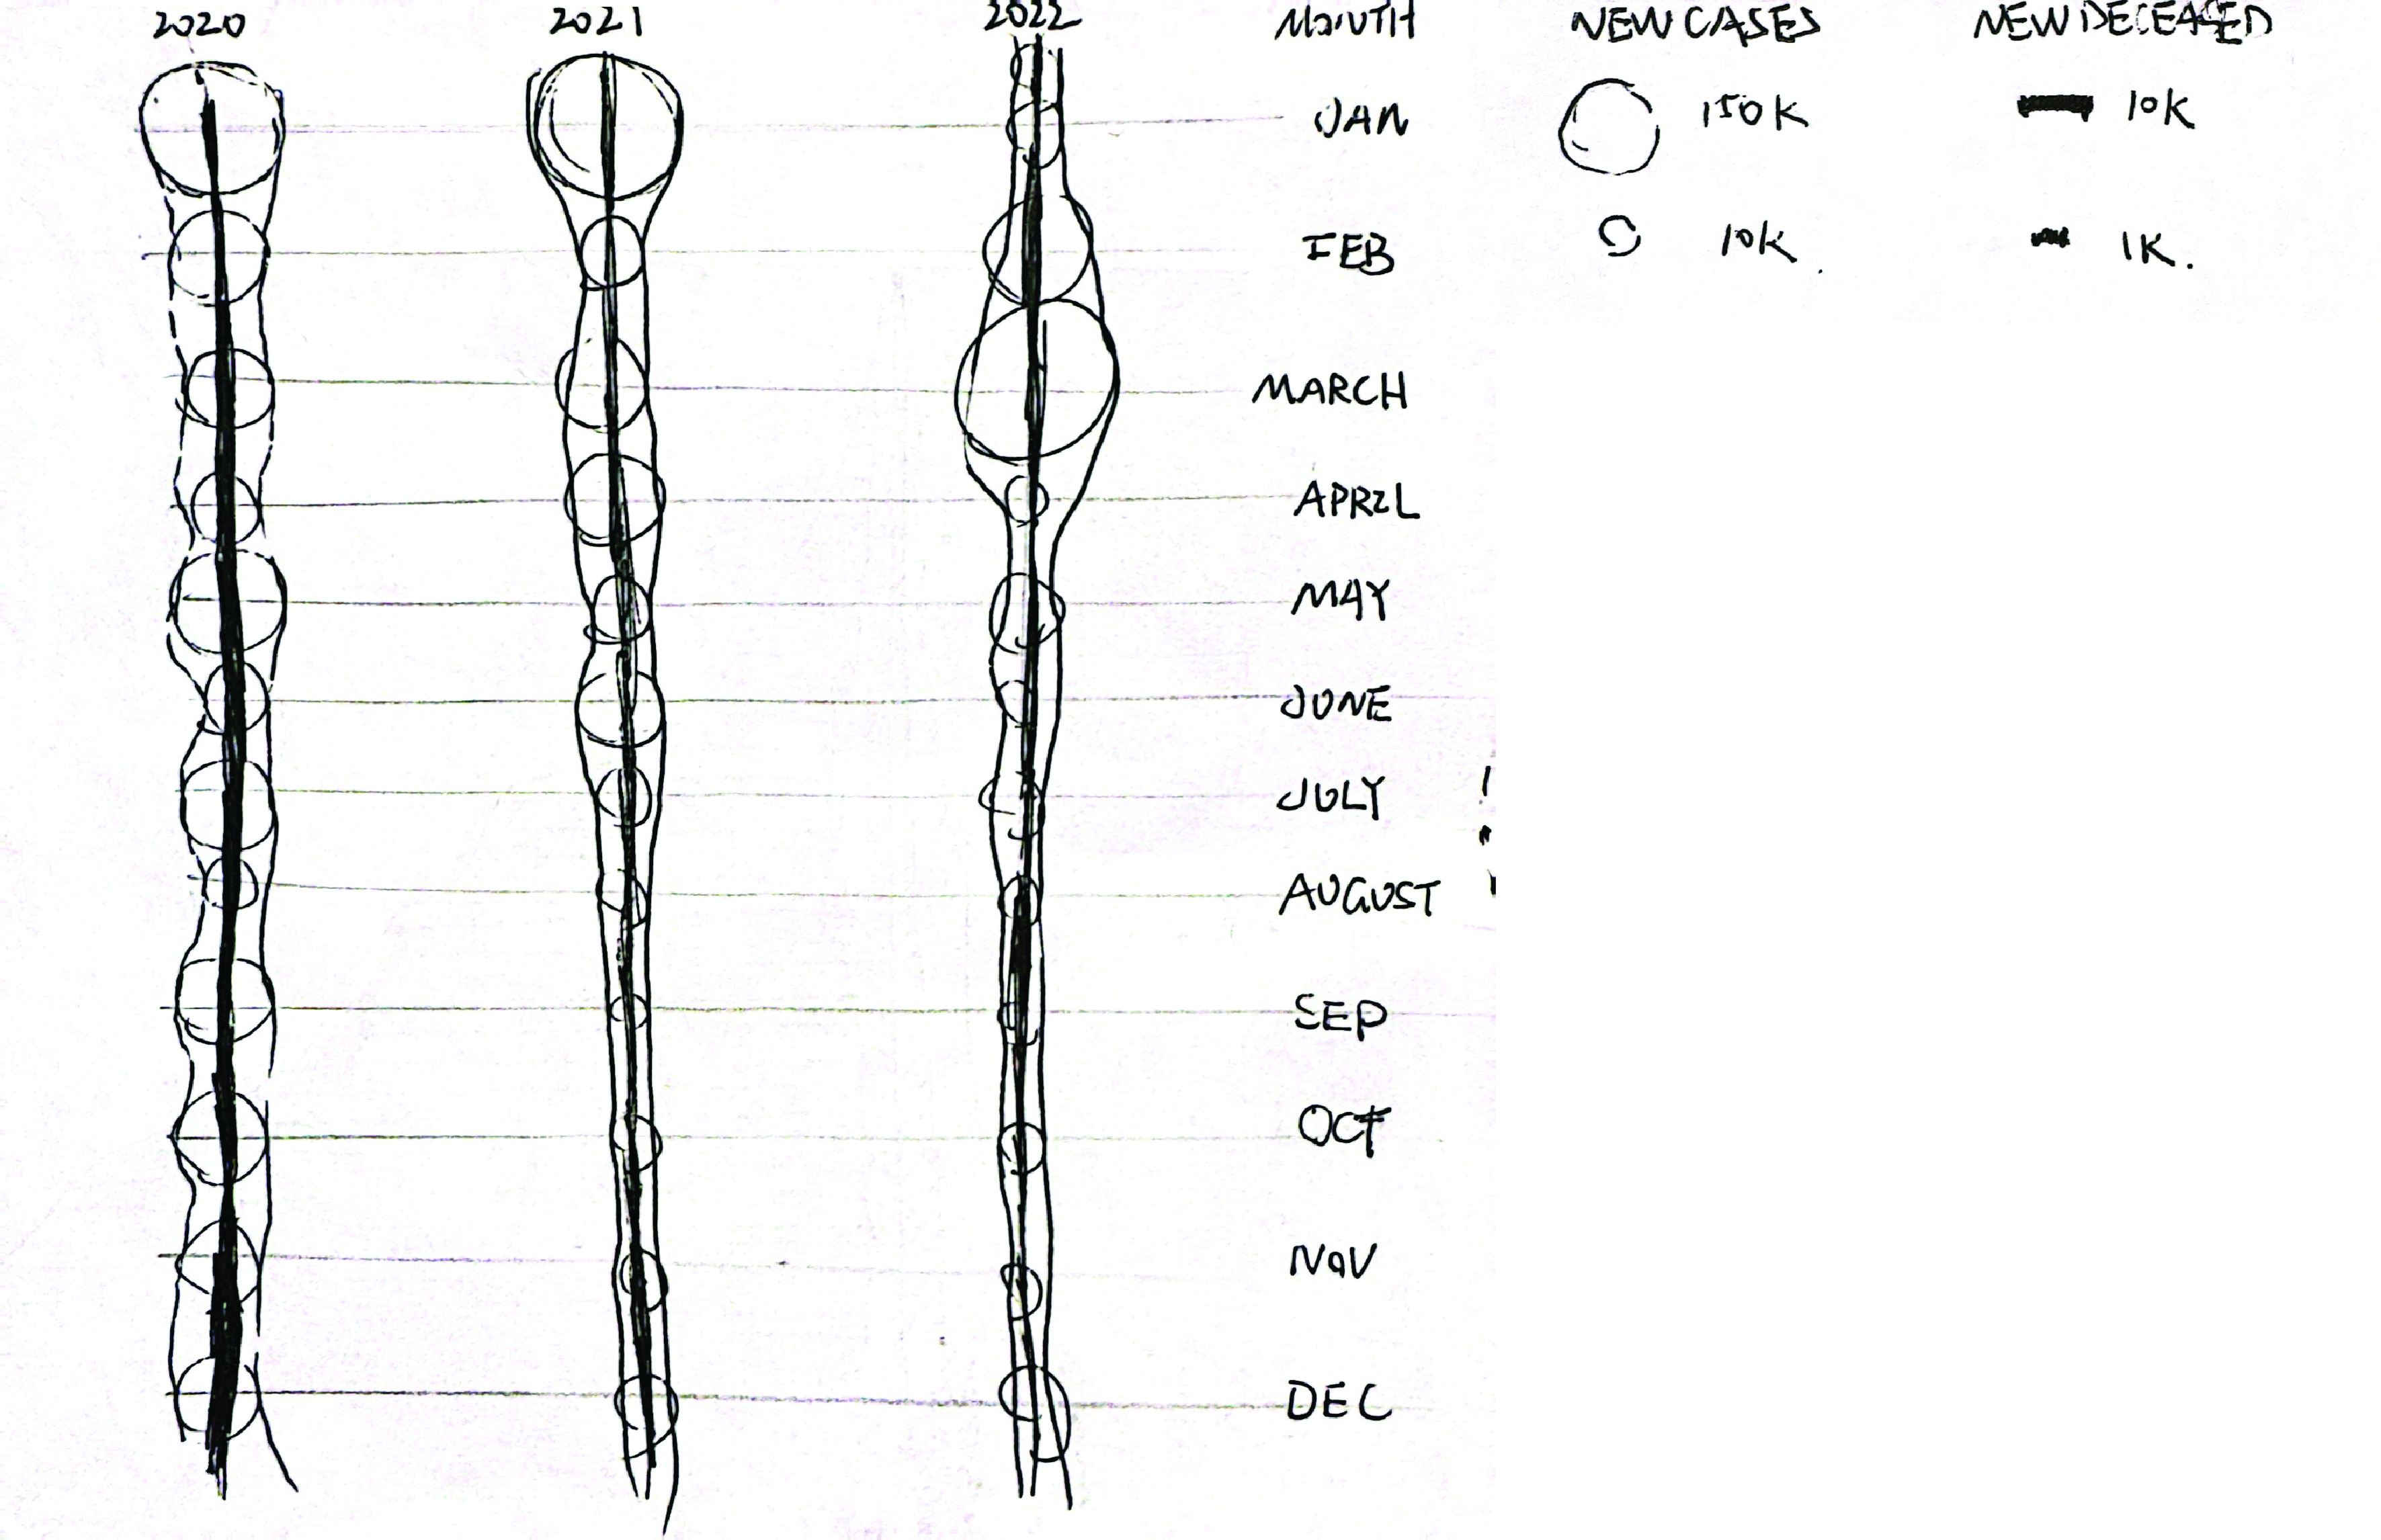 2020 2021 2022 MONTH NEW CASES NEW DECEASED
JAN 150K 10K
FEB 10K. 1K.
MARCH
APRIL
MAY
JUNE
JULY
AUGUST
SEP
OCT
NOV
DEC